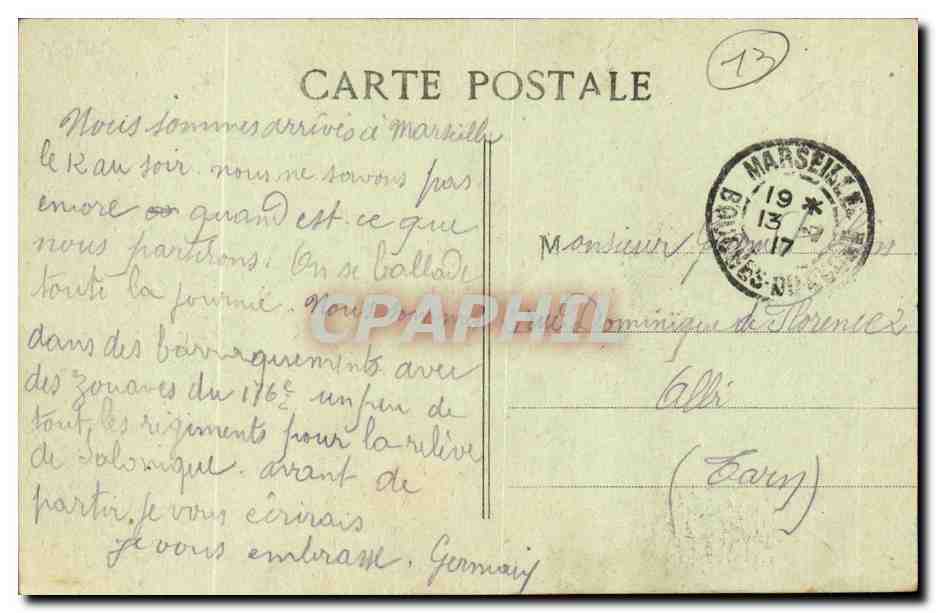 13
CARTE POSTALE
Nous sommes arrivés à Marseille
le 12 au soir. nous ne savons pas
encore quand est-ce que
nous partirons. On se ballade
toute la journée. Nous sommes
dans des barraquements avec
des zouaves du 176e un peu de
tout, les régiments pour la relève
de Salonique. avant de
partir, je vous écrirais
Je vous embrasse. Germain
MARSEILLE
19 *
13
17
BOUCHES-DU-RHONE
Monsieur
rue Dominique de Florence 2
Albi
(Tarn)
CPAPHIL